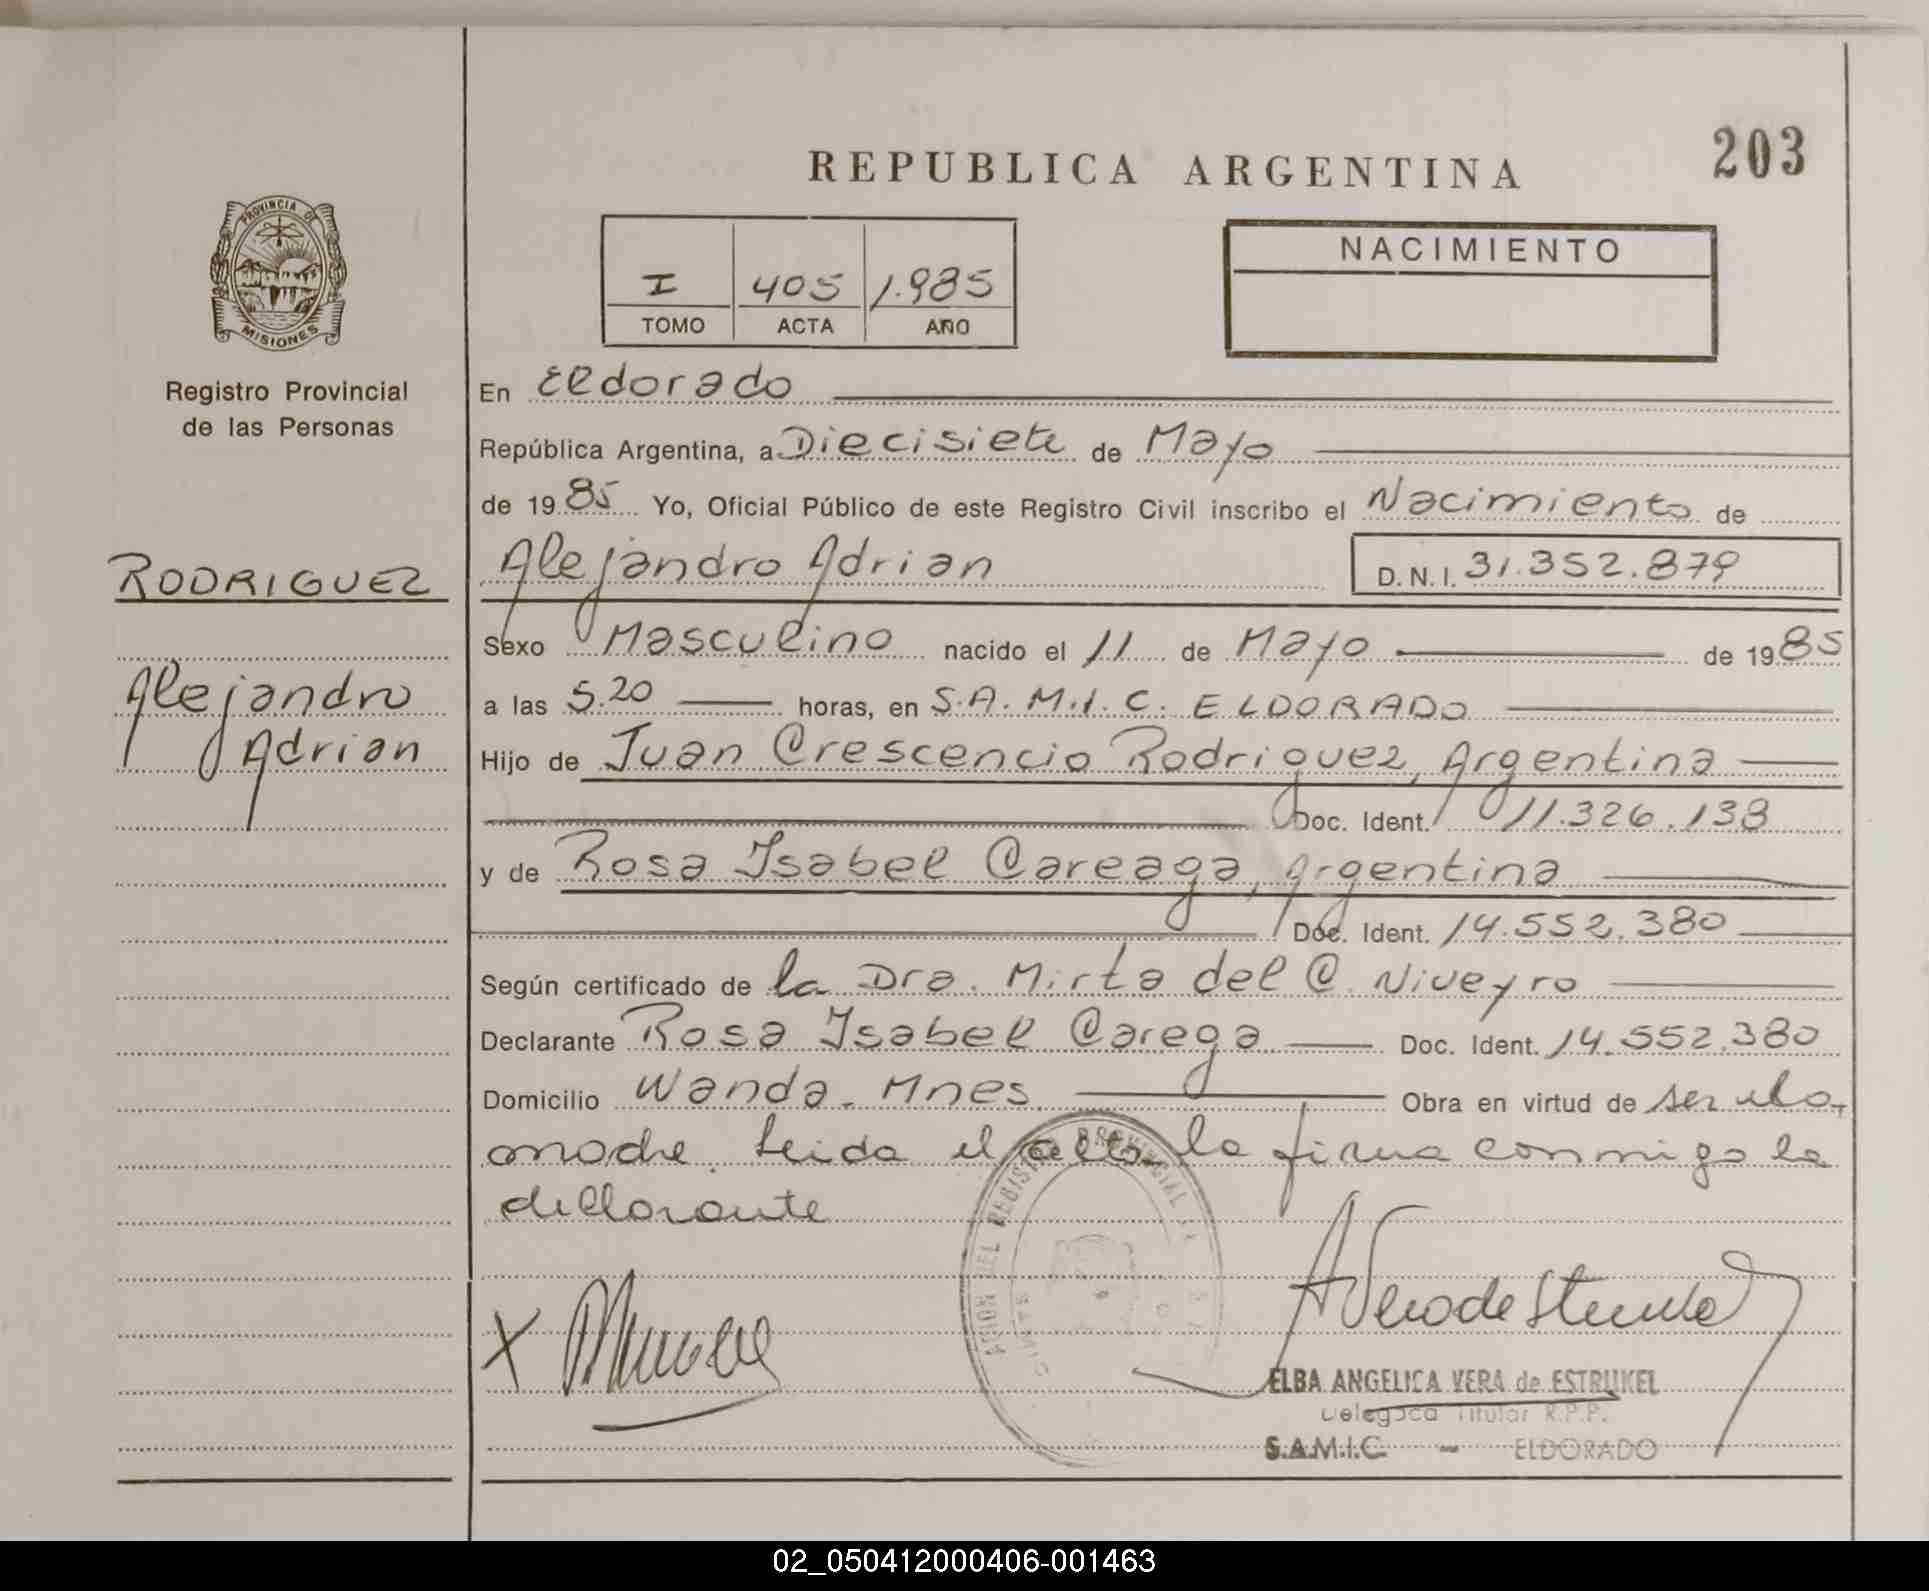 203
REPUBLICA ARGENTINA
PROVINCIA DE
MISIONES
Registro Provincial
de las Personas
RODRIGUEZ
Alejandro
Adrian
I 405 1.985
TOMO ACTA AÑO
NACIMIENTO
En Eldorado
República Argentina, a Diecisiete de Mayo
de 1985 Yo, Oficial Público de este Registro Civil inscribo el Nacimiento de
Alejandro Adrian D.N.I. 31.352.879
Sexo Masculino nacido el 11 de Mayo de 1985
a las 5.20 horas, en S.A.M.I.C. ELDORADO
Hijo de Juan Crescencio Rodriguez, Argentina
Doc. Ident. 11.326.138
y de Rosa Isabel Careaga, Argentina
Doc. Ident. 14.552.380
Según certificado de la Dra. Mirta del C. Niveyro
Declarante Rosa Isabel Carega Doc. Ident. 14.552.380
Domicilio Wanda - Mnes Obra en virtud de ser la
madre. Leida el acta la firma conmigo la
declarante
X
REGISTRO PROVINCIAL
ELBA ANGELICA VERA de ESTRUKEL
Delegada Titular R.P.P.
S.A.M.I.C. - ELDORADO
02_050412000406-001463